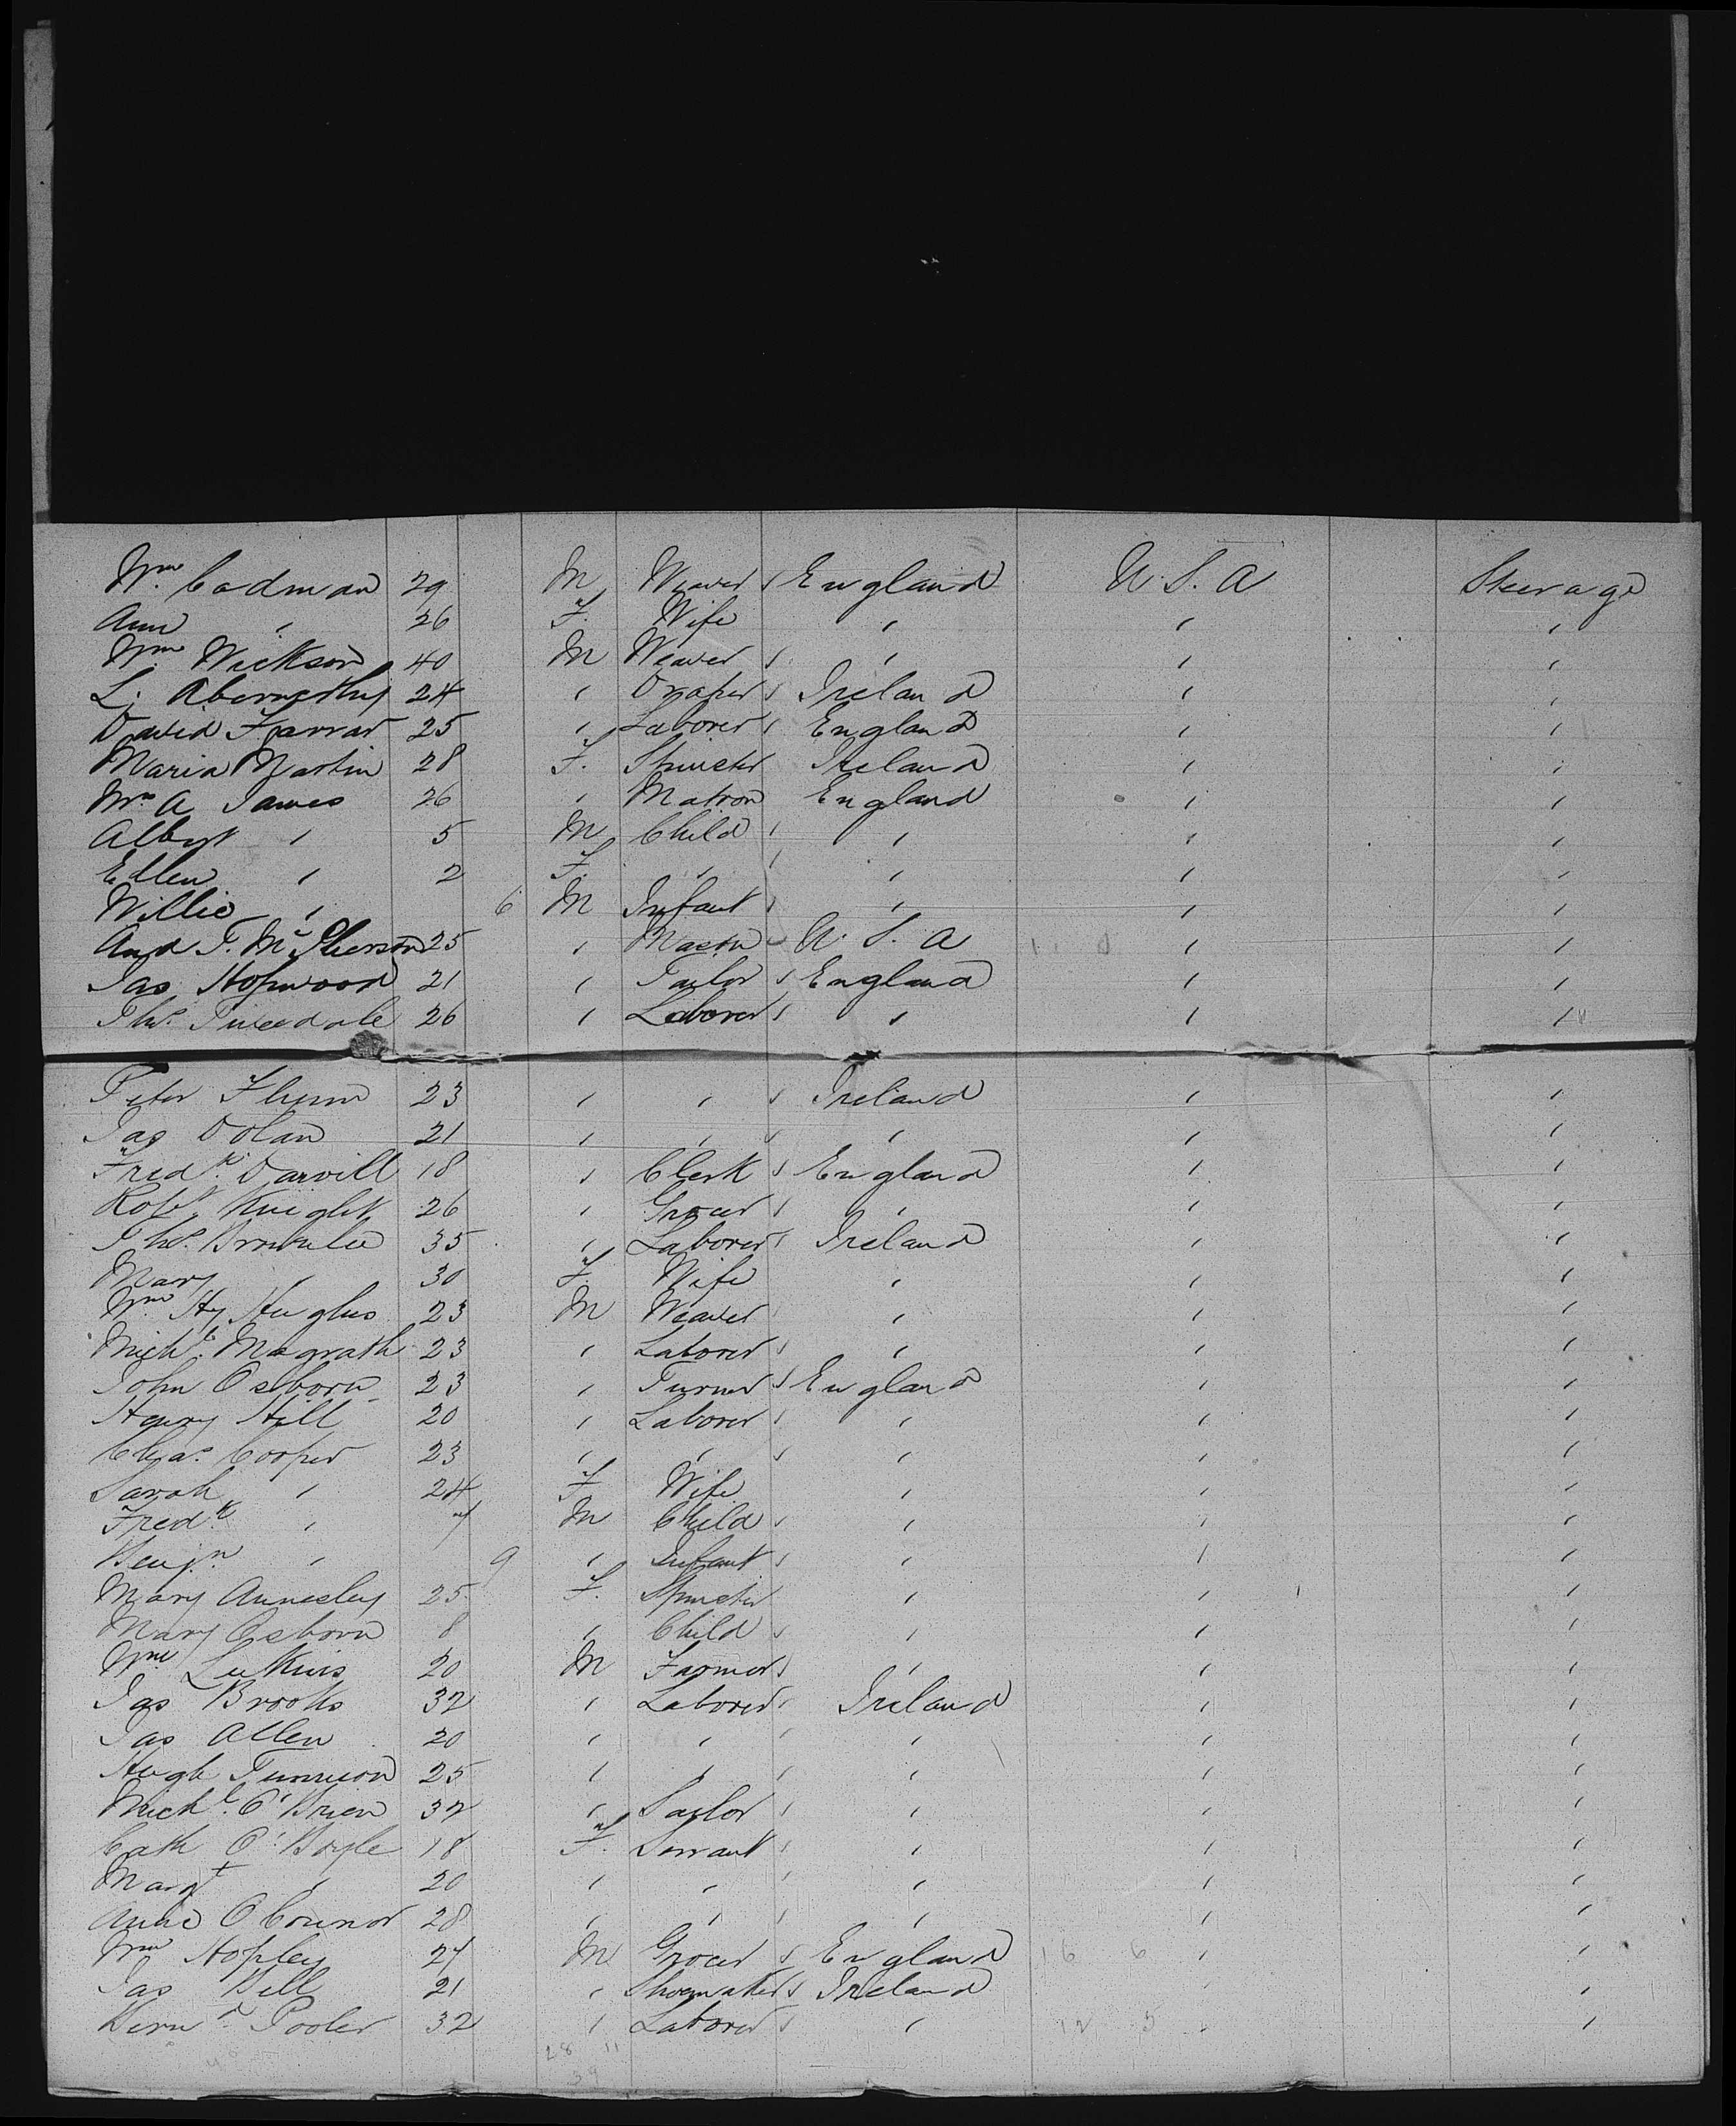 Wm. Cadman 29 M Weaver England U.S.A Steerage
Ann " 26 F. Wife " " "
Wm. Wickson 40 M Weaver " " "
L. Abernethy 24 " Draper Ireland " "
David Farrar 25 " Laborer England " "
Maria Martin 28 F. Spinster Ireland " "
Mrs A James 26 " Matron England " "
Albert " 5 M Child " " "
Ellen " 2 F. " " " "
Willie " 6 M Infant " " "
And T. McPherson 25 " Mason U.S.A " "
Jas Hopwood 21 " Tailor England " "
Thos. Tweedale 26 " Laborer " " "
Peter Flynn 23 " " Ireland " "
Jas Dolan 21 " " " " "
Fredk. Darvill 18 " Clerk England " "
Robt. Knight 26 " Grocer " " "
Thos. Brownlee 35 " Laborer Ireland " "
Mary " 30 F. Wife " " "
Wm. Hy Hughes 23 M Weaver " " "
Michl. Magrath 23 " Laborer " " "
John Osborn 23 " Turner England " "
Henry Hill 20 " Laborer " " "
Chas. Cooper 23 " " " " "
Sarah " 24 F. Wife " " "
Fredk. " 7 M Child " " "
Benjn. " 9 " Infant " " "
Mary Annesley 25 F. Spinster " " "
Mary Osborn 8 " Child " " "
Wm. 20 M Farmer " " "
Jas Brooks 32 " Laborer Ireland " "
Jas Allen 20 " " " " "
Hugh 25 " " " " "
Michl. O'Brien 32 " Sailor " " "
Cath O'Boyle 18 F. Servant " " "
Margt " 20 " " " " "
Anne O'Connor 28 " " " " "
Wm Hopley 27 M Grocer England 16 6 " "
Jas Bell 21 " Shoemaker Ireland " "
Bernd. Pooler 32 " Laborer " 12 5 " "
28 11
39